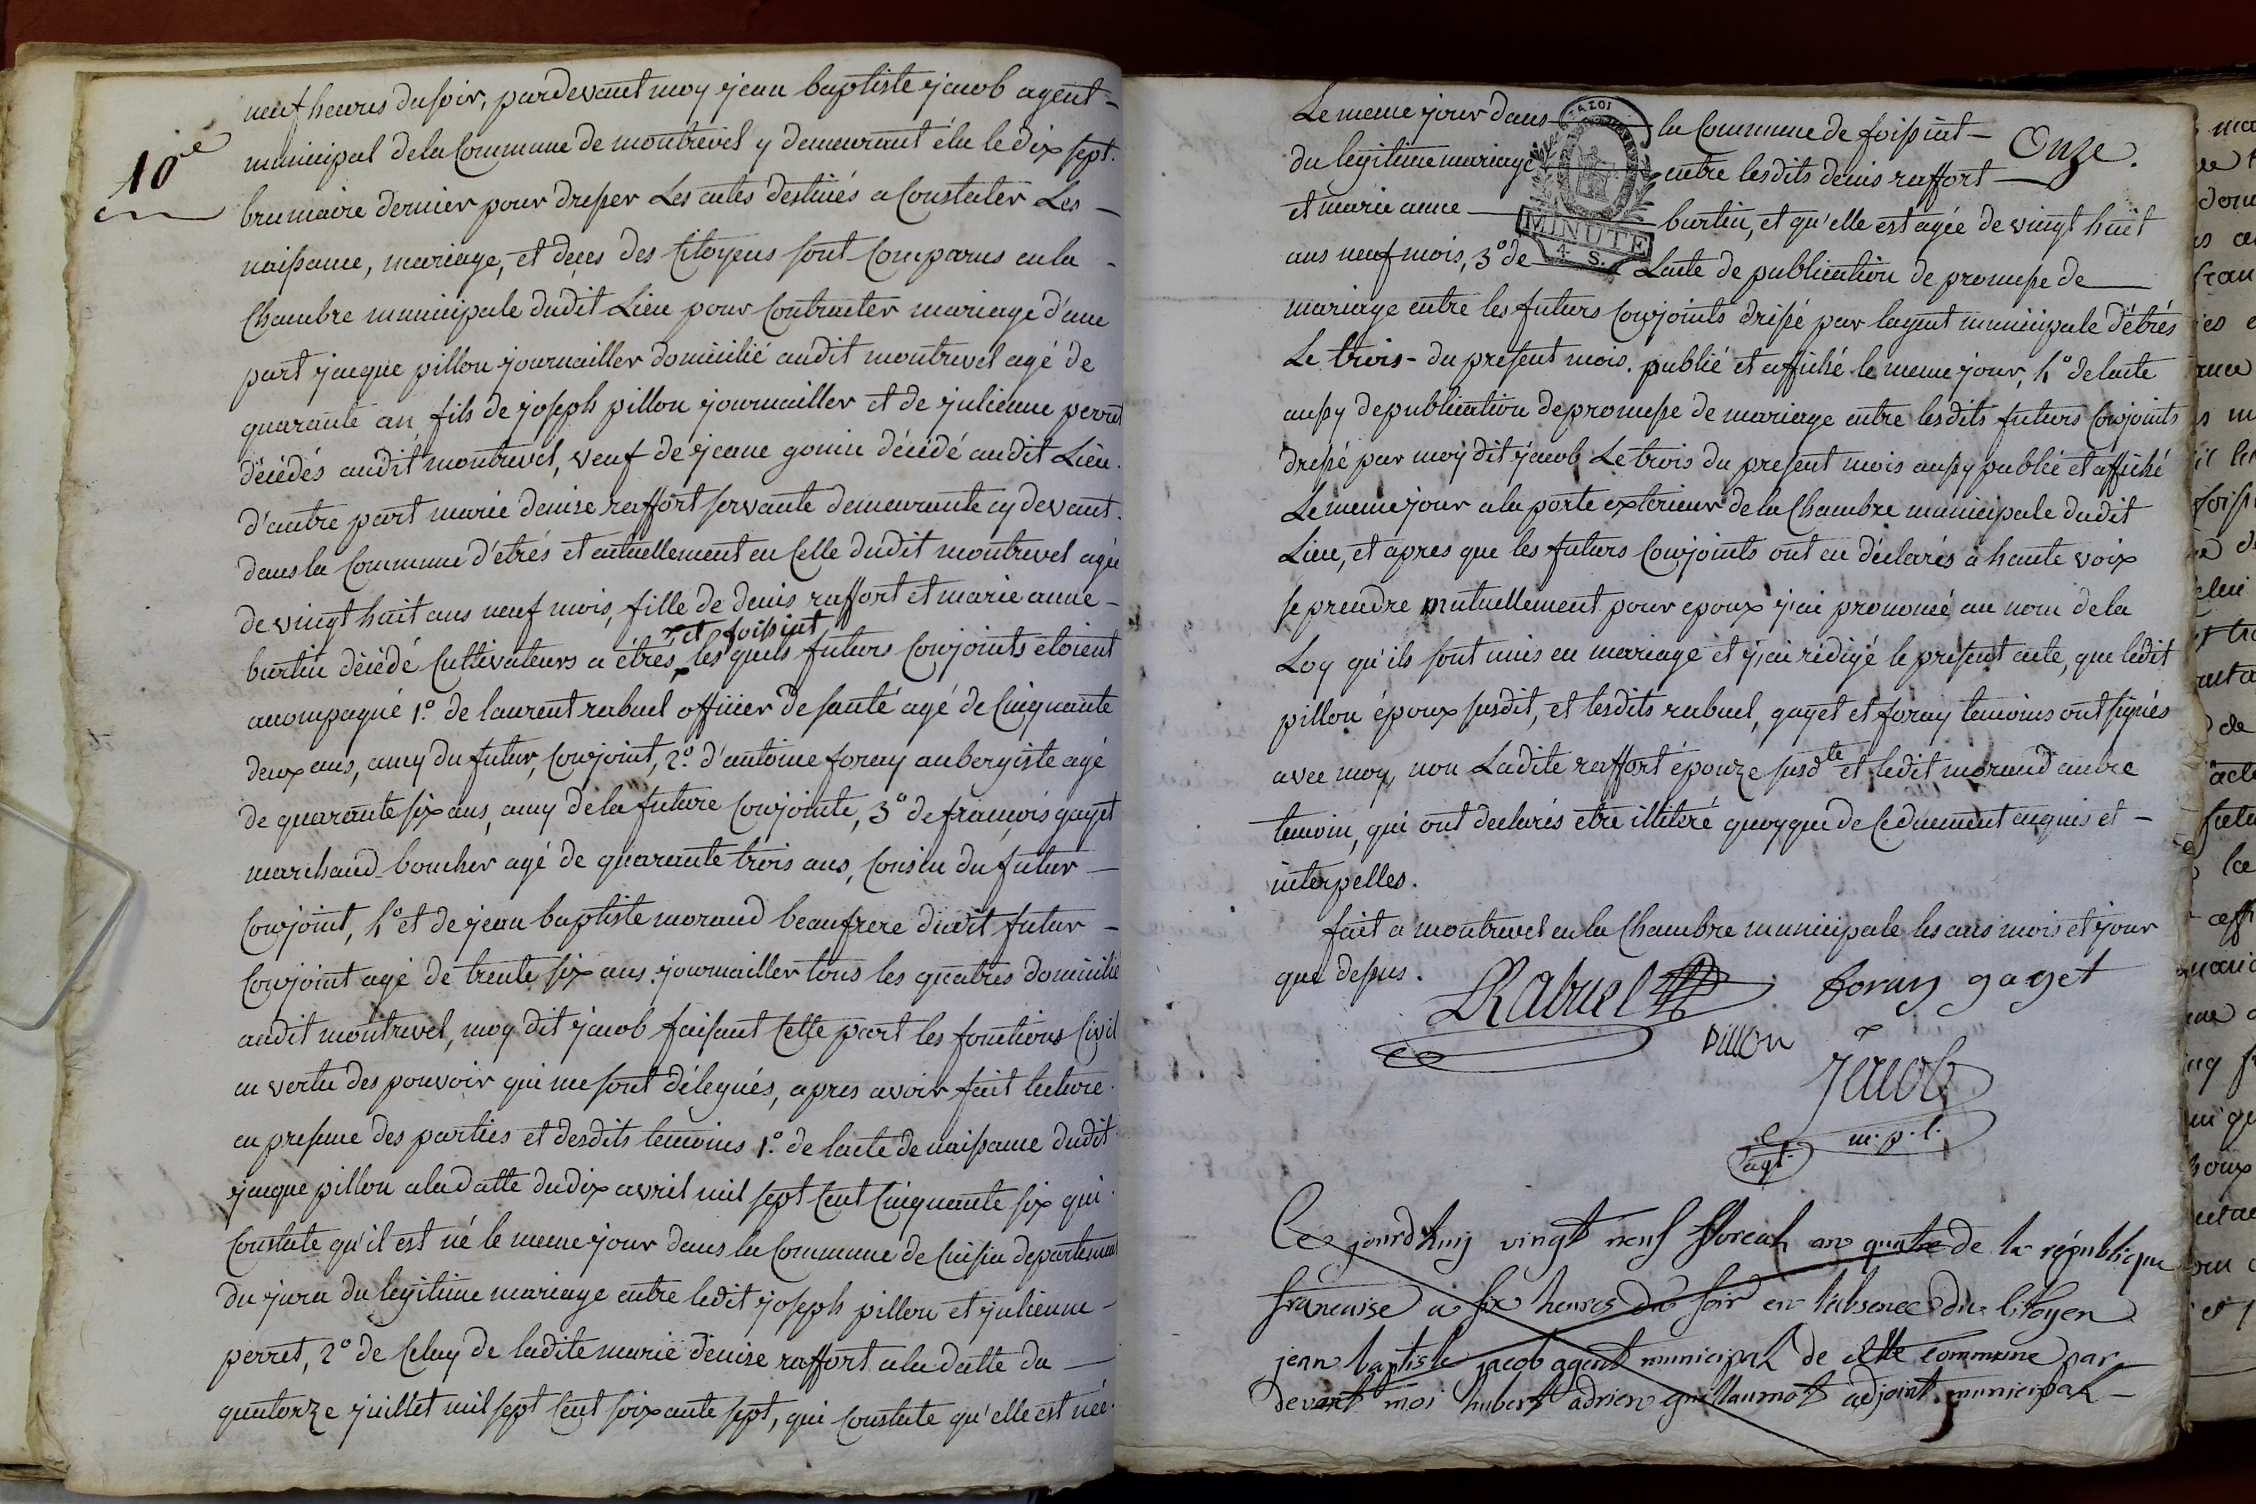 10e
neuf heures du soir, pardevant moy jean baptiste jacob agent-
municipal de la Commune de montrevel y demeurant élu le dix sept.
brumaire dernier pour dresser Les actes destinés a Constater Les -
naissance, mariage, et deçes des Citoyens sont Comparus en la -
Chambre municipale dudit Lieu pour Contracter mariage d'une
part jacque pillon journailler domicilié audit montrevel agé de
quarante an fils de joseph pillon journailler et de julienne perret
décédés audit montrevel, veuf de jeane gonin décédé audit Lieu.
d'autre part marie denise raffort servante demeurante cy devant.
dans la Commune d'étrés et actuellement en Celle dudit montrevel agée
de vingt huit ans neuf mois, fille de denis raffort et marie anne -
et foissiat
burtin décédé Cultivateurs a étrés, les quels futurs Conjoints étoient
acompagné 1.º de laurent rabuel officier de santé agé de Cinquante
deux ans, amy du futur, Conjoint, 2.º d'antoine foray aubergiste agé
de quarante six ans, amy de la future Conjointe, 3º de françois gayet
marchand boucher agé de quarante trois ans, Cousin du futur -
Conjoint, 4º et de jean baptiste morand beaufrere dudit futur -
Conjoint agé de trente six ans journailler tous les quatres domicilié
audit montrevel, moy dit jacob faisant Cette part les fonctions Civil
en vertu des pouvoir qui me sont délegués, apres avoir fait lecture.
en presence des parties et desdits temoins 1.º de lacte de naissance dudit
jacque pillon a la datte du dix avril mil sept Cent Cinquante six qui.
Constate qu'il est né le meme jour dans la Commune de Cuisia departement
du jura du légitime mariage entre ledit joseph pillon et julienne -
perret, 2º de Celuy de ladite marie denise raffort a la datte du -
quatorze juillet mil sept Cent soixante sept, qui Constate qu'elle est née.
Le meme jour dans la Commune de foissiat - Onze.
du légitime mariage entre lesdits denis raffort -
et marie anne - burtin, et qu'elle est agée de vingt huit
MINUTE
4 S.
ans neuf mois, 3º de Lacte de publication de promesse de
mariage entre les futurs Conjoints dressé par lagent municipale d'étrés
Le trois - du present mois. publié et affiché le meme jour, 4º de lacte
aussy de publication de promesse de mariage entre lesdits futurs Conjoints
dressé par moy dit jacob Le trois du present mois aussy publié et affiché
Le meme jour a la porte exterieur de la Chambre municipale dudit
Lieu, et apres que les futurs Conjoints ont eu déclarés à haute voix
se prendre mutuellement pour epoux j'ai prononcé au nom de la
Loy qu'ils sont unis en mariage et j'ai rédigé le present acte, que ledit
pillon époux susdit, et lesdits rabuel, gayet et foray temoins ont signés
avec moy, non Ladite raffort épouze susdte et ledit morand autre
temoin, qui ont declarés etre illitéré quoyque de Ce duement enquis et -
interpelles.
fait a montrevel en la Chambre municipale les ans mois et jour
que dessus.
LRabuel foray gayet
pillon
jacob
agt. m.p.l.
Ce jourdhuy vingt neuf floreal an quatre de la république
francaise a six heures du soir en labsence du Citoyen
jean baptiste jacob agent municipal de cette commune par
devant moi hubert adrien guillaumot adjoint municipal -